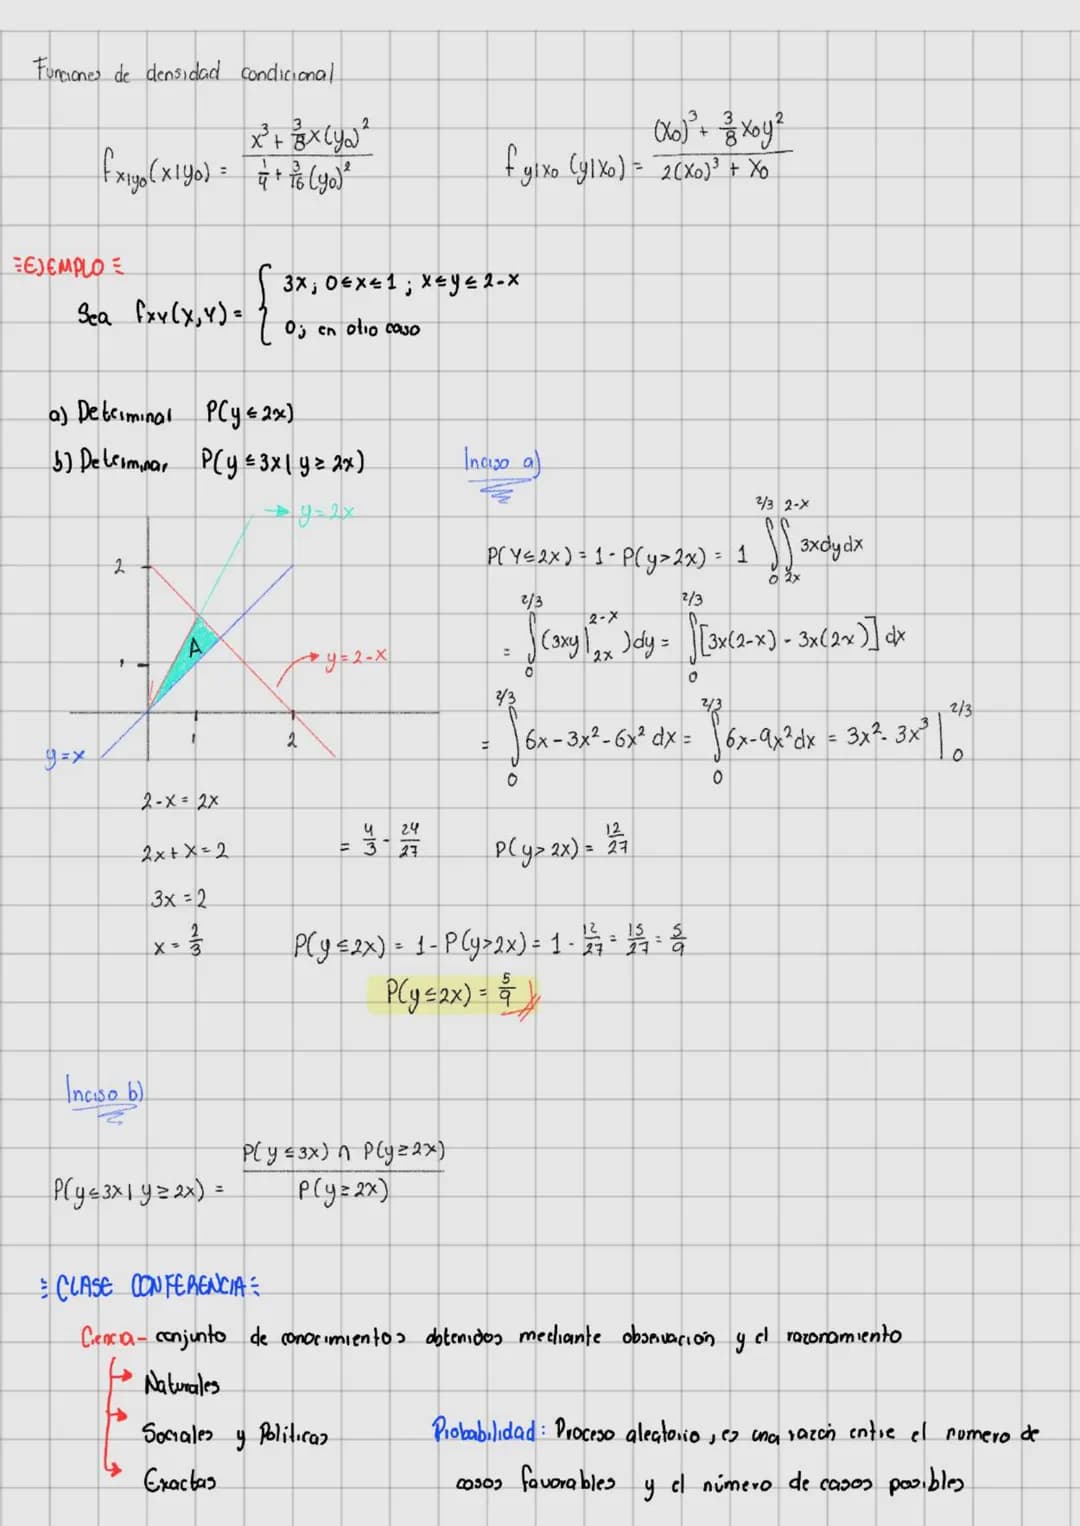 Funciones de densidad condicional
f x|y₀ (x|y₀) = (x³ + 3/8 x(y₀)²) / (1/4 + 3/16 (y₀)²)    f y|x₀ (y|x₀) = ((x₀)³ + 3/8 x₀y²) / (2(x₀)³ + x₀)
EJEMPLO
Sea fxy(x,y) = { 3x; 0≤x≤1; x≤y≤2-x
0; en otro caso
a) Determinar P(y≤2x)
b) Determinar P(y≤3x | y≥2x)
Inciso a)
y=2x
2
1
A
y=2-x
1
2
y=x
P(Y≤2x) = 1 - P(y>2x) = 1 ∫₀^{2/3} ∫_{2x}^{2-x} 3x dy dx
= ∫₀^{2/3} (3xy |_{2x}^{2-x}) dy = ∫₀^{2/3} [3x(2-x) - 3x(2x)] dx
= ∫₀^{2/3} 6x - 3x² - 6x² dx = ∫₀^{2/3} 6x - 9x² dx = 3x² - 3x³ |₀^{2/3}
2-x = 2x
2x+x = 2
3x = 2
x = 2/3
= 4/3 - 24/27    P(y>2x) = 12/27
P(y≤2x) = 1 - P(y>2x) = 1 - 12/27 = 15/27 = 5/9
P(y≤2x) = 5/9
Inciso b)
P(y≤3x | y≥2x) = P(y≤3x) ∩ P(y≥2x) / P(y≥2x)
CLASE CONFERENCIA
Ciencia - conjunto de conocimientos obtenidos mediante observación y el razonamiento
Naturales
Sociales y Politicas
Exactas
Probabilidad: Proceso aleatorio, es una razón entre el numero de
casos favorables y el número de casos posibles